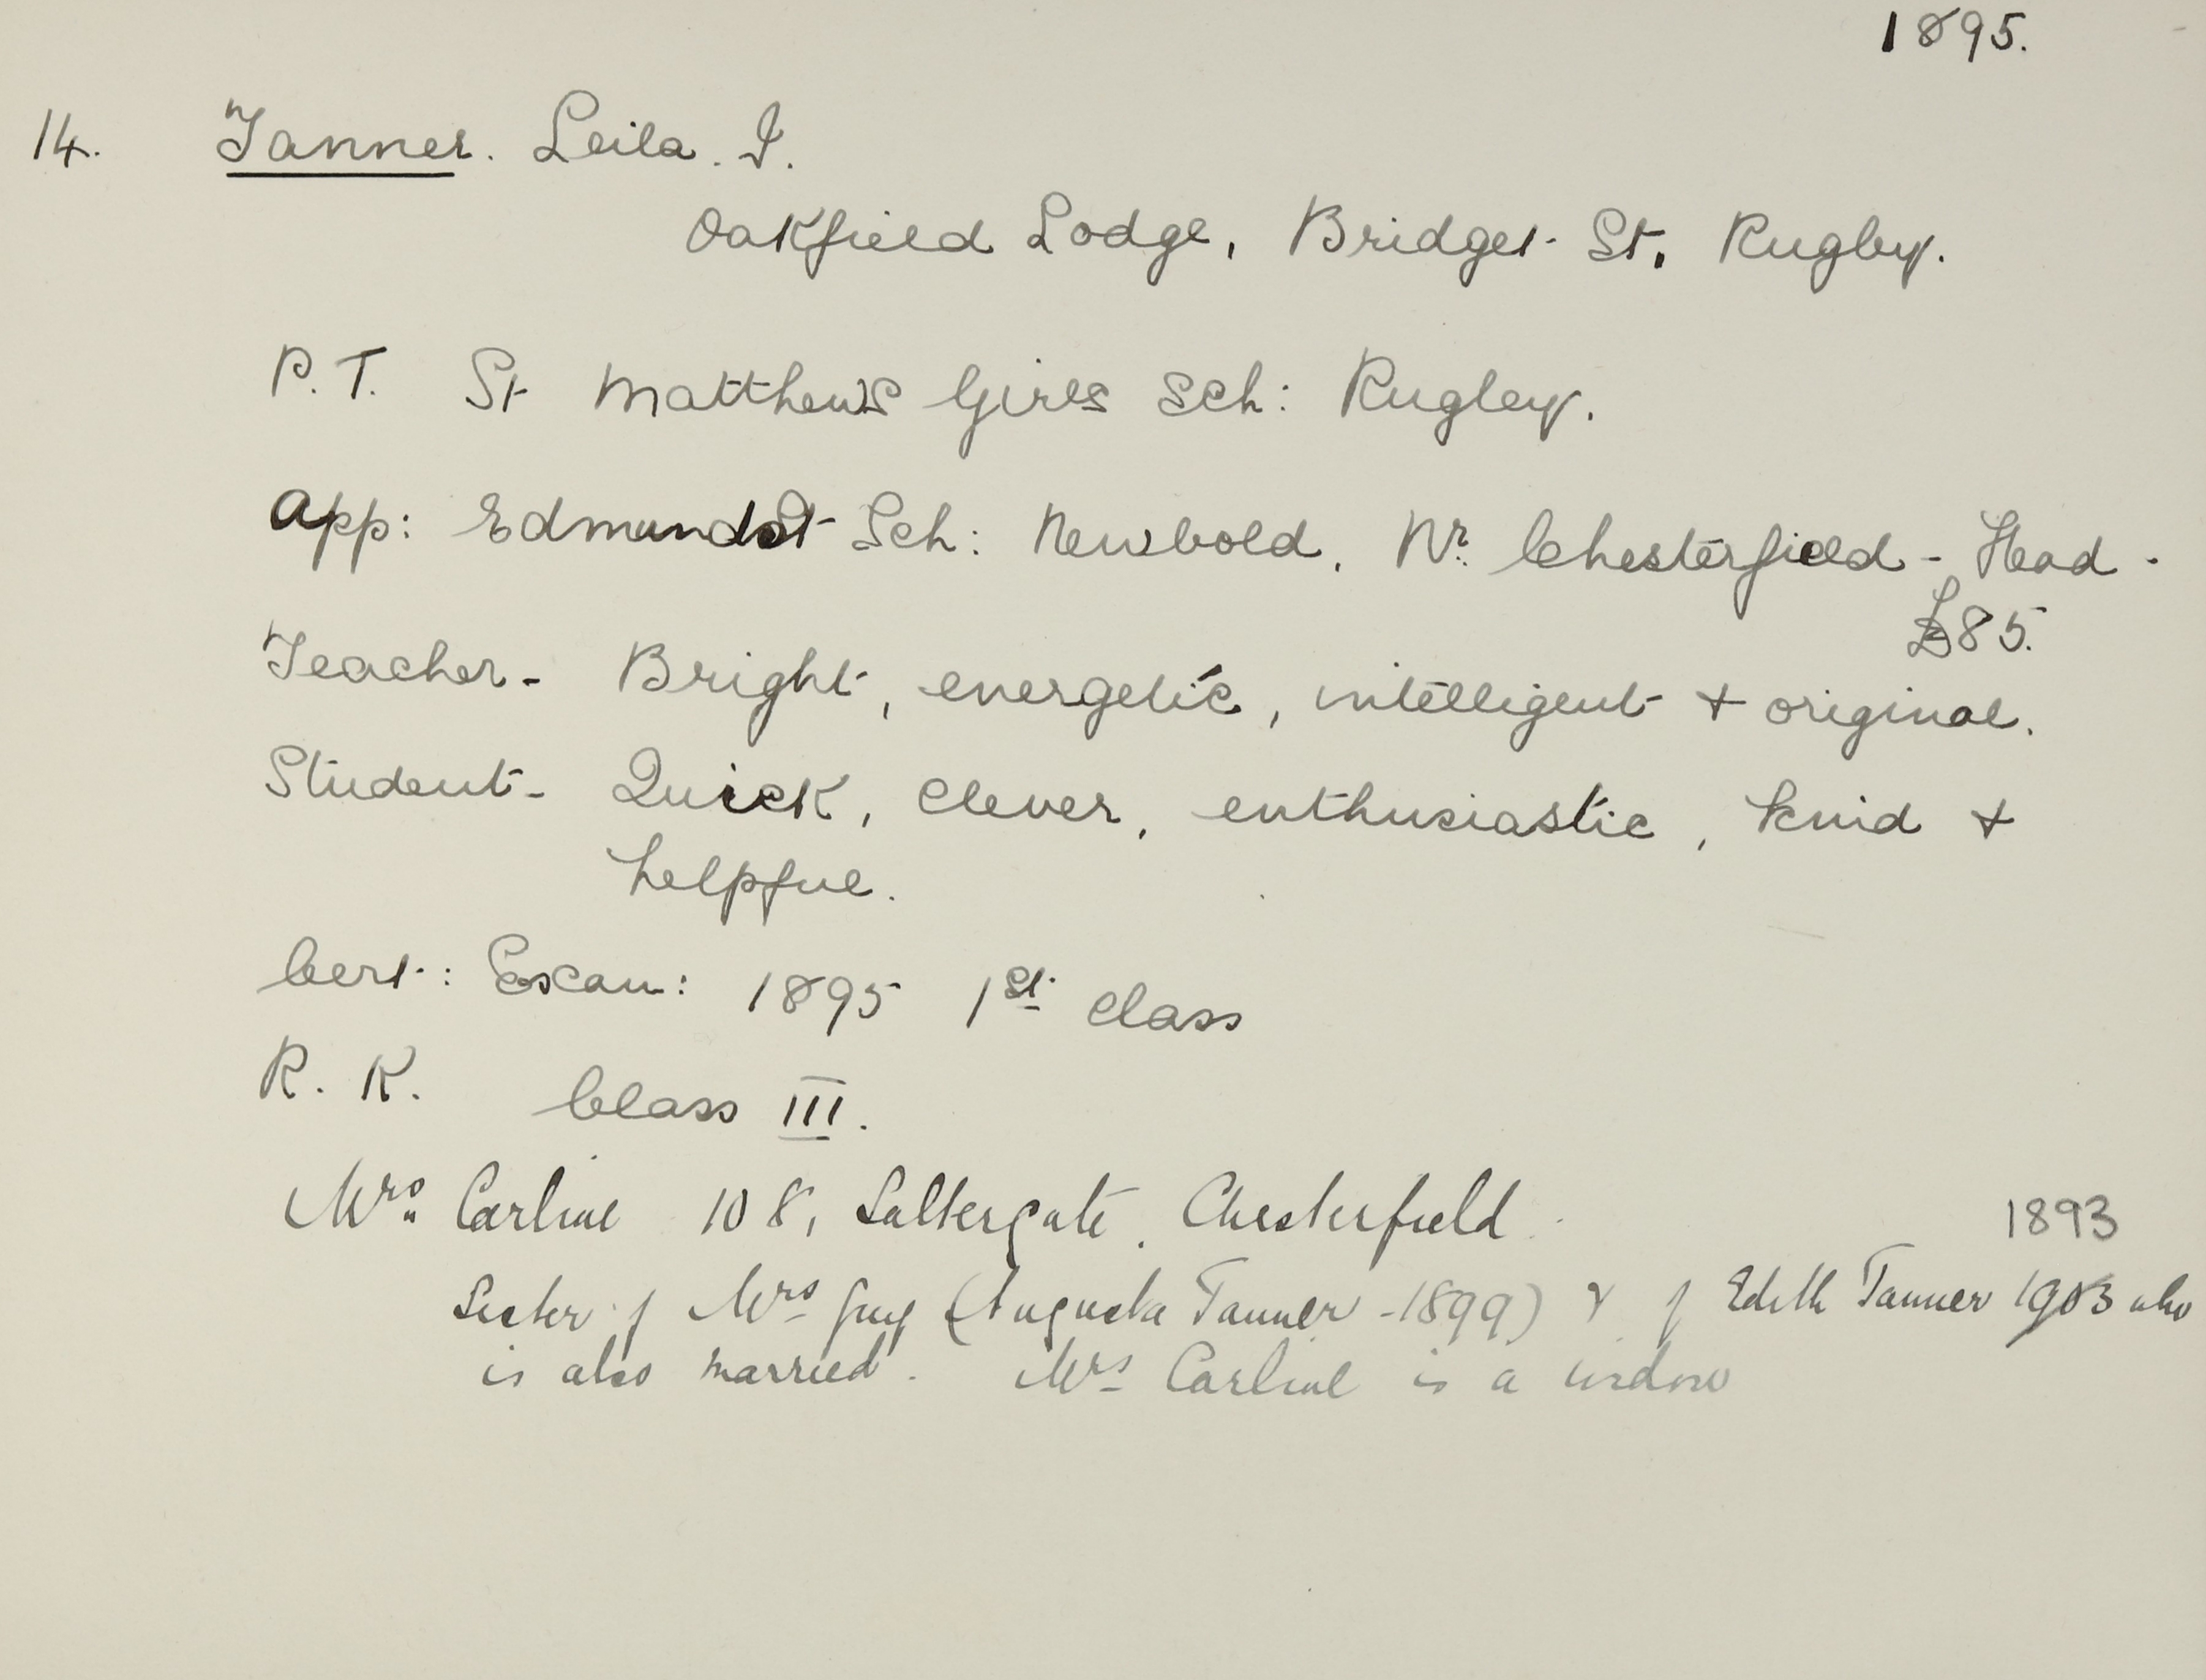 1895.
14. Tanner. Leila. I.
Oakfield Lodge, Bridget St. Rugby.
P.T. St Matthew's Girls Sch: Rugby.
App: Edmund St Sch: Newbold, Nr. Chesterfield - Head -
£85.
Teacher - Bright, energetic, intelligent + original.
Student - Quick, clever, enthusiastic, kind +
helpful.
Cert: Exam: 1895 1st class
R. K. Class III.
Mrs. Carline 108, Saltergate, Chesterfield.
1893
Sister of Mrs Guy (Augusta Tanner - 1899) & of Edith Tanner 1903 who
is also married. Mrs Carline is a widow